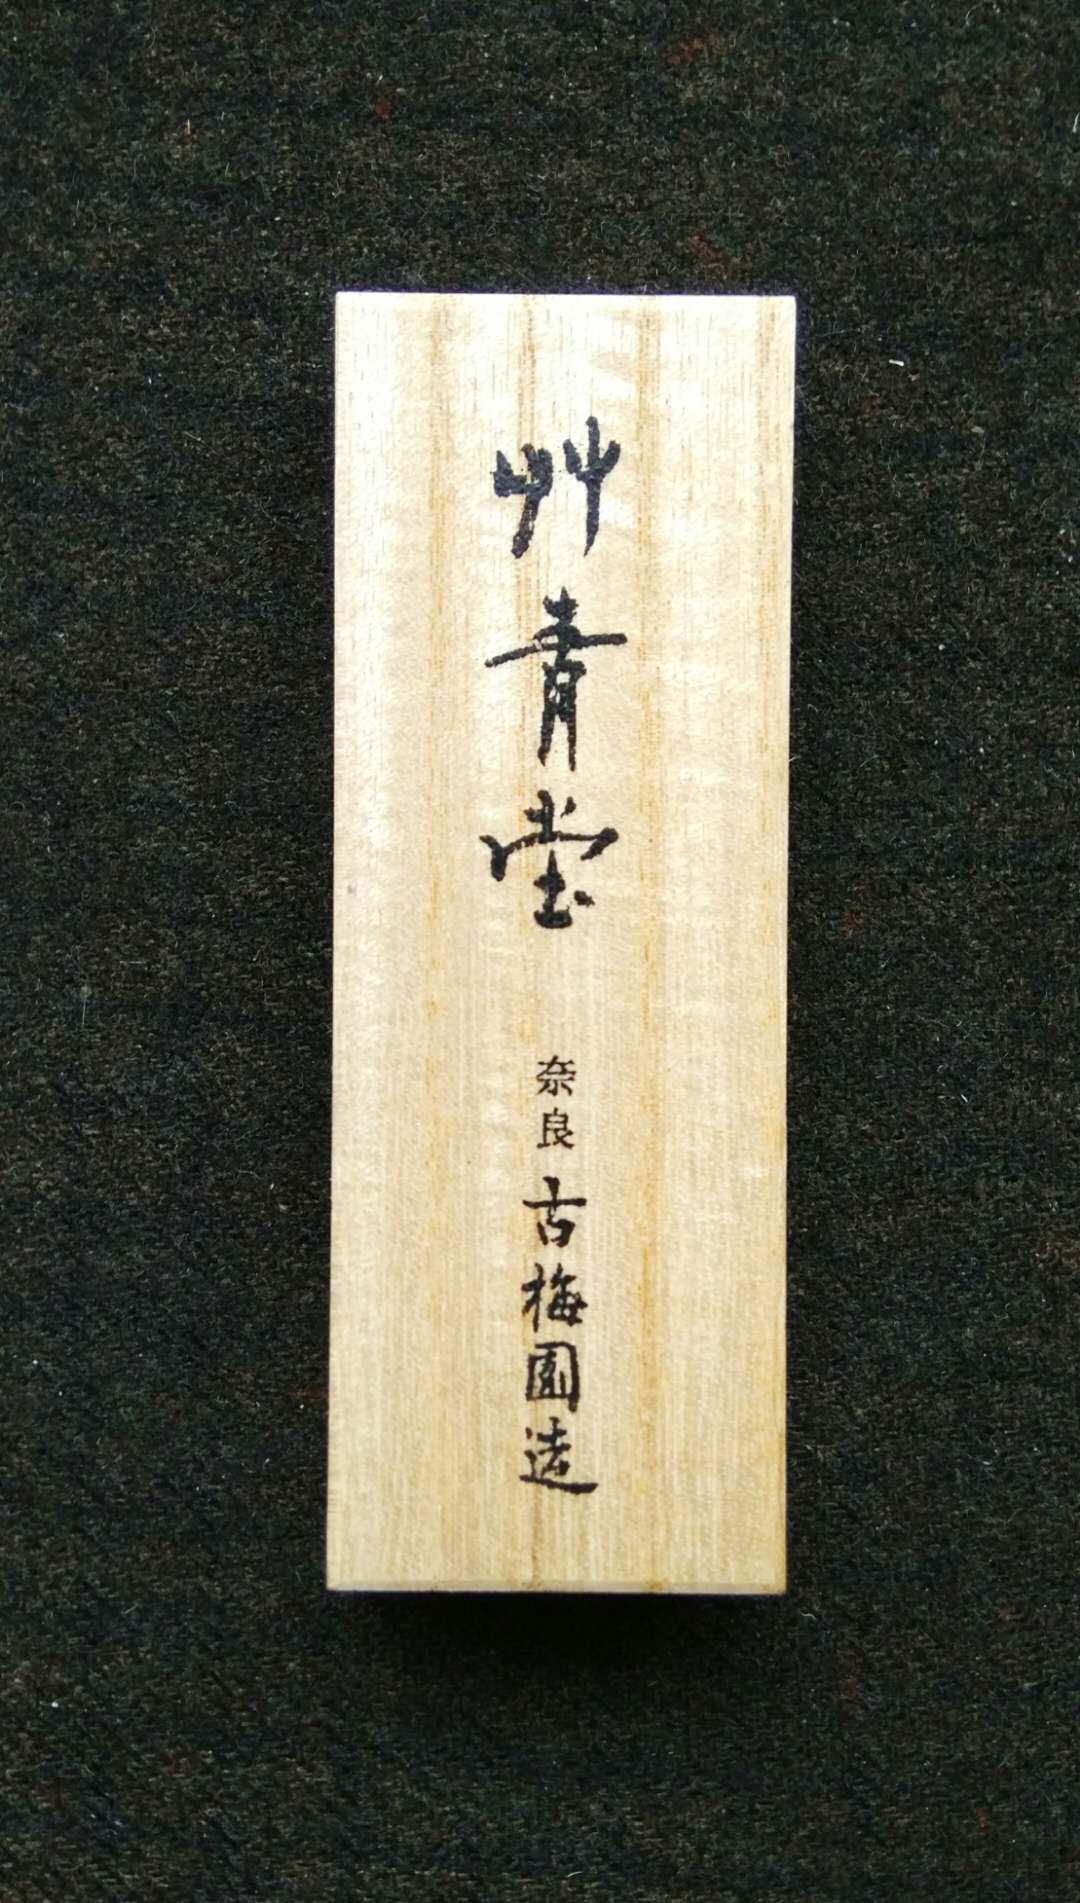 艸青堂
奈良 古梅園造